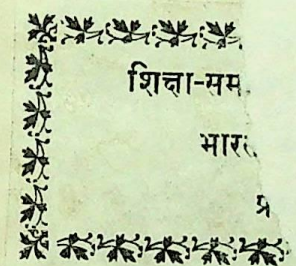 शिक्षा-सम
भार